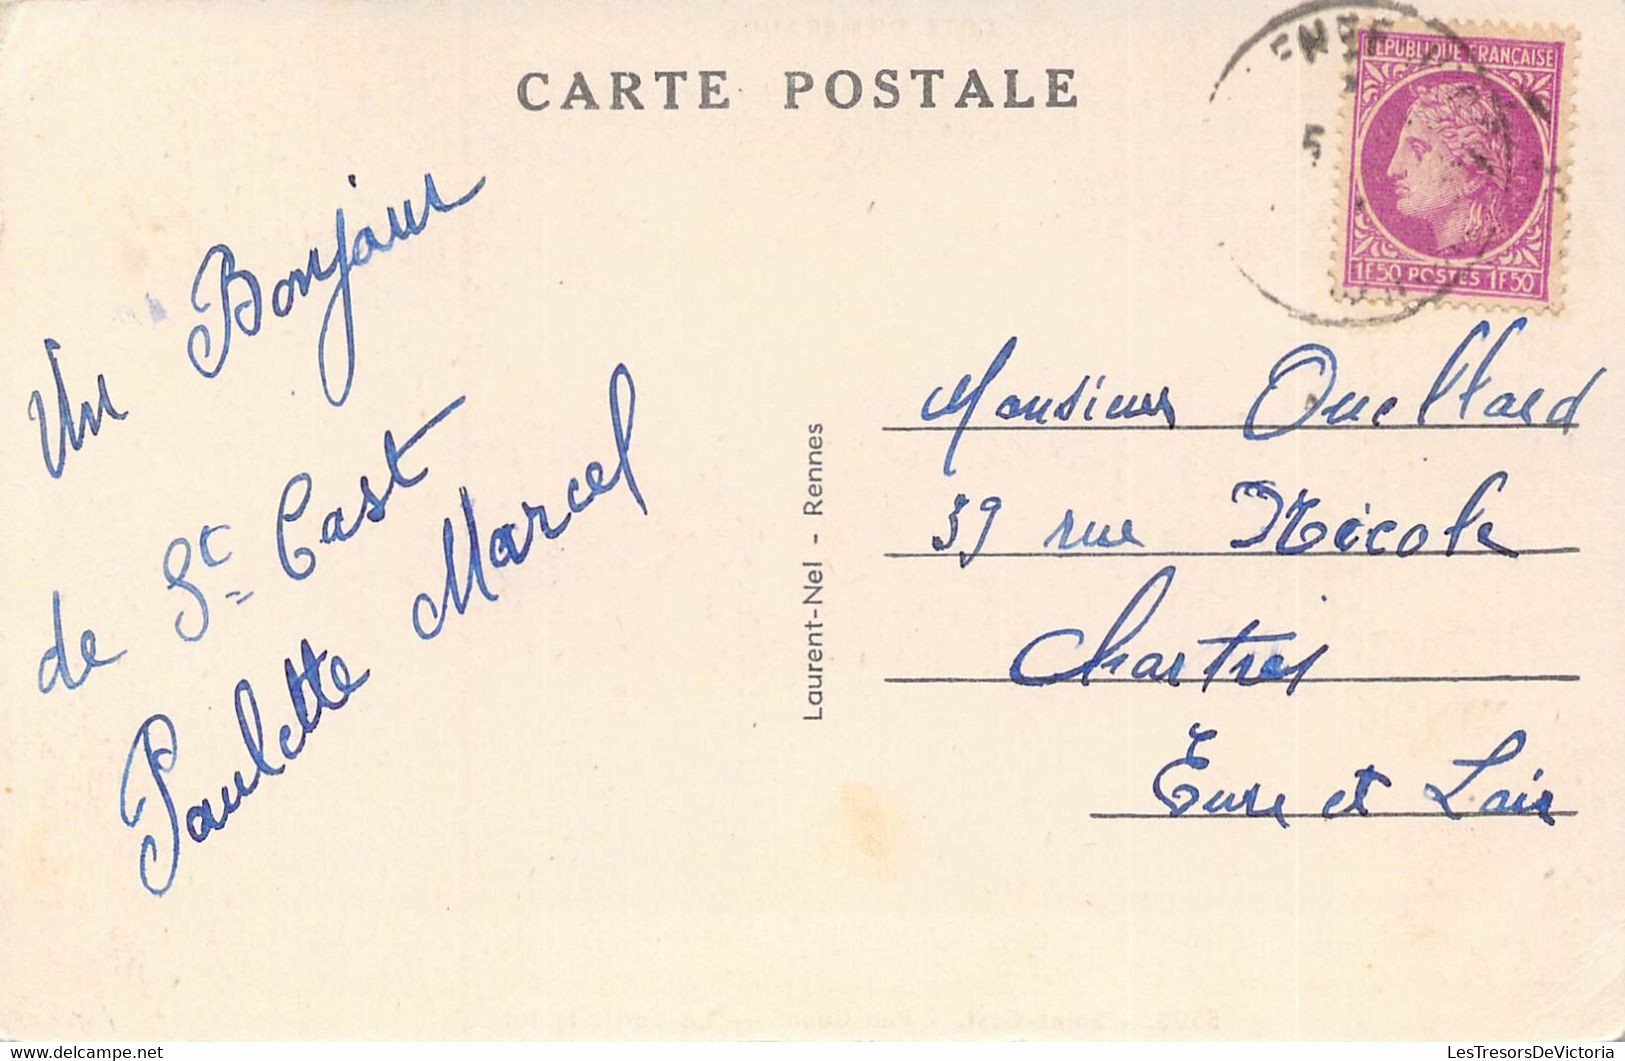 CARTE POSTALE
REPUBLIQUE FRANÇAISE
1F50 POSTES 1F50
5
Un Bonjour
de St Cast
Paulette Marcel
Laurent-Nel - Rennes
Monsieur Ouellard
39 rue Nicole
Chartres
Eure et Loir
LesTresorsDeVictoria